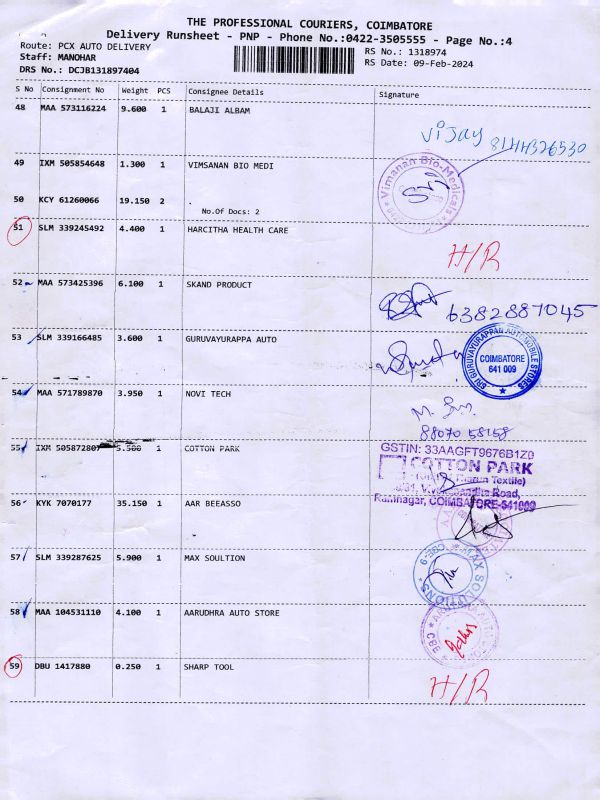 THE PROFESSIONAL COURIERS, COIMBATORE
Delivery Runsheet - PNP - Phone No.:0422-3505555 - Page No.:4
Route: PCX AUTO DELIVERY
RS No.: 1318974
Staff: MANOHAR
RS Date: 09-Feb-2024
DRS No.: DCJB131897404
S No Consignment No Weight PCS Consignee Details Signature
48 MAA 573116224 9.600 1 BALAJI ALBAM
Vijay 8144326530
49 IXM 505854648 1.300 1 VIMSANAN BIO MEDI
Vimanan Bio-Medicals
50 KCY 61260066 19.150 2 .
No.Of Docs: 2
51 SLM 339245492 4.400 1 HARCITHA HEALTH CARE
H/R
52 MAA 573425396 6.100 1 SKAND PRODUCT
6382887045
53 SLM 339166485 3.600 1 GURUVAYURAPPA AUTO
SRI GURUVAYURAPPAN AUTOMOBILE STORES
COIMBATORE
641 009
54 MAA 571789870 3.950 1 NOVI TECH
88070 58158
55 IXM 505872807 5.500 1 COTTON PARK
GSTIN: 33AAGFT9676B1Z0
COTTON PARK
Textile)
Road,
Ramnagar, COIMBATORE-641009
56 KYK 7070177 35.150 1 AAR BEEASSO
57 SLM 339287625 5.900 1 MAX SOULTION
MAX SOLUTIONS CBE-9
58 MAA 104531110 4.100 1 AARUDHRA AUTO STORE
59 DBU 1417880 0.250 1 SHARP TOOL
H/R